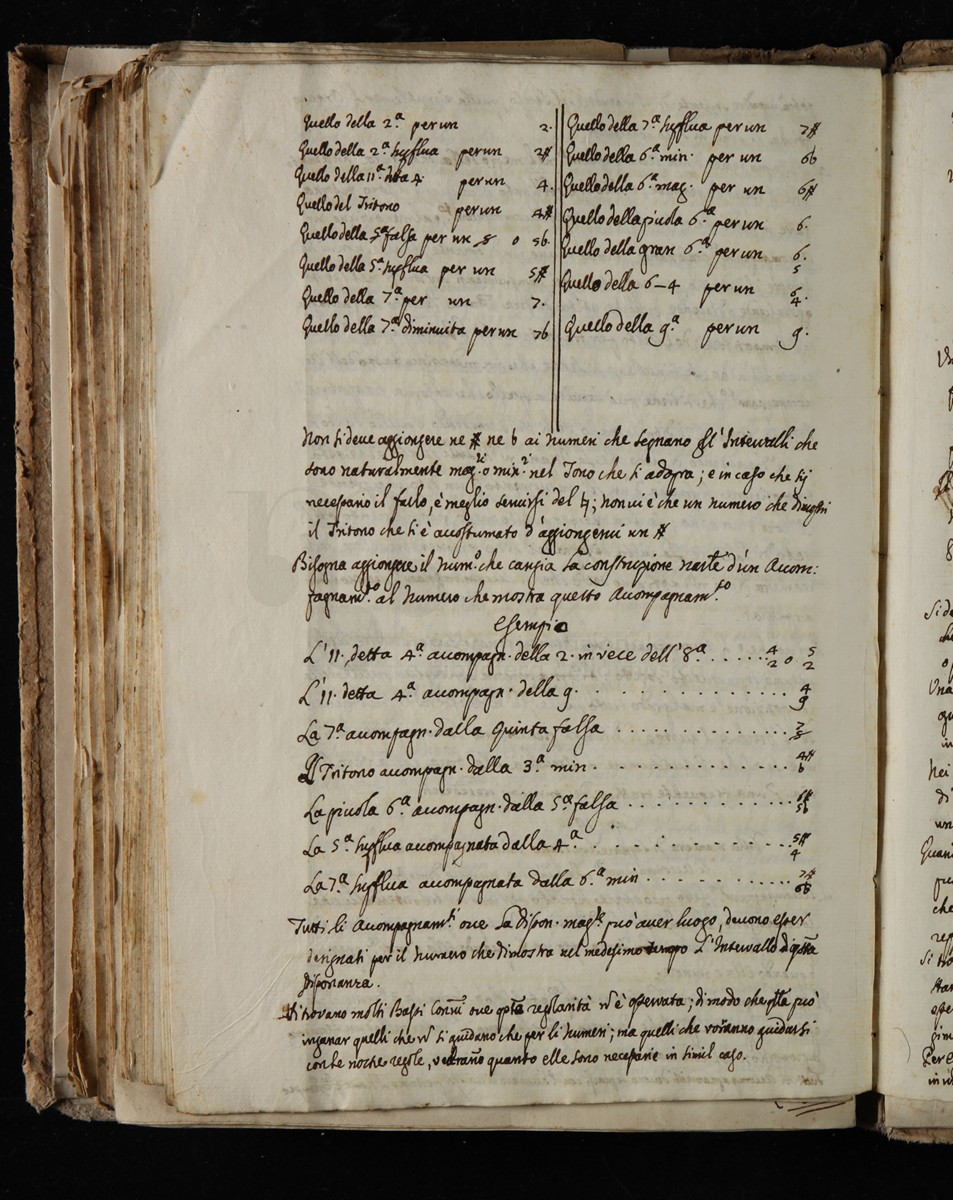 Quello della 2.ª per un 2.
Quello della 2.ª supflua per un 2#
Quello della 11.ª detta 4. per un 4.
Quello del Tritono per un 4#
Quello della 5ª falsa per un 8 o 5b.
Quello della 5.ª supflua per un 5#
Quello della 7.ª per un 7.
Quello della 7.ª diminuita per un 7b
Quello della 7.ª supflua per un 7#
Quello della 6.ª min. per un 6b
Quello della 6.ª mag. per un 6#
Quello della picola 6.ª per un 6.
Quello della gran 6.ª per un 6. 5
Quello della 6-4 per un 6 4.
Quello della 9.ª per un 9.
Non si deve aggiongere ne # ne b ai numeri che segnano gl'Intervalli che
sono naturalmente mag.ri o min.ri nel Tono che si adopra; e in caso che sij
necessario il farlo, è meglio servirsi del ♮; non vi è che un numero che dinoti
il Tritono che si è accostumato d'aggiongervi un #
Bisogna aggiongere il num.o che cangia la construzione nãle d'un Acom:
pagnam.to al numero che mostra questo Acompagnam.to
Esempio
L'11. detta 4.ª accompagn. della 2. in vece dell'8.ª . . . . . 4 2 o 5 2
L'11. detta 4.ª accompagn. della 9. . . . . . . . . . . . . . 4 9
La 7.ª accompagn. dalla Quinta falsa . . . . . . . . . . . 7 8
Il Tritono accompagn. dalla 3.ª min. . . . . . . . . . . . 4# b
La picola 6.ª accompagn. dalla 5.ª falsa . . . . . . . . . . 6# 5b
La 5.ª supflua accompagnata dalla 4.ª . . . . . . . . . 5# 4
La 7.ª supflua accompagnata dalla 6.ª min . . . . . . . . . 7# 6b
Tutti li Acompagnam.ti ove la dispon. mag.re può aver luogo, devono esser
designati per il numero che dimostra nel medesimo tempo l'Intervallo di q̃sta
disonanza.
Si trovano molti Bassi Conñi ove q̃sta regolarità ñ è osservata; di modo che q̃sta può
inganar quelli che ñ si guidano che per li numeri; ma quelli che vorañno guidarsi
con le nostre regole, vedrañno quanto elle sono necessarie in simil caso.